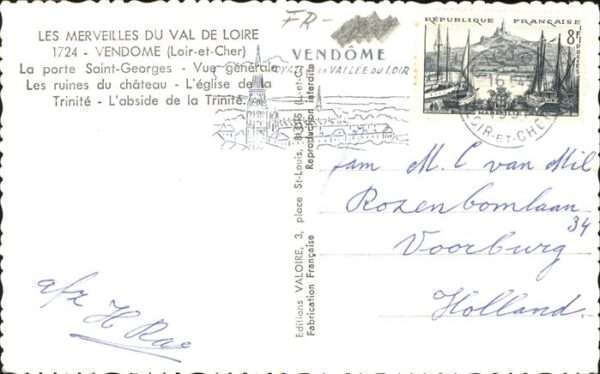 LES MERVEILLES DU VAL DE LOIRE
1724 - VENDOME (Loir-et-Cher)
La porte Saint-Georges - Vue générale
Les ruines du château - L'église de la
Trinité - L'abside de la Trinité.
FR-
VENDÔME
EN VALLÉE DU LOIR
RÉPUBLIQUE FRANÇAISE
8F
16
LOIR-ET-CHER
Editions VALOIRE, 3, place St-Louis, (L.-et-C.)
Fabrication Française Reproduction interdite
fam M. C van Mil
Rozenbomlaan
34
Voorburg
Holland.
afz H Rae